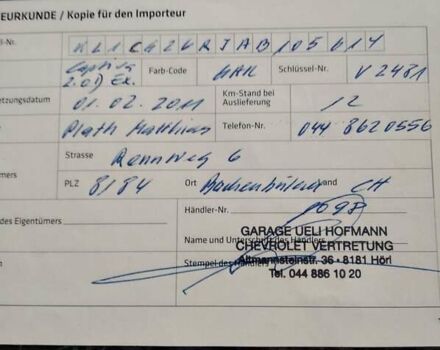 EURKUNDE / Kopie für den Importeur
l-Nr. KL1CG26RJAB105614
Captiva 2.0D Ex. Farb-Code GAR Schlüssel-Nr. V2481
etzungsdatum 01.02.2011 Km-Stand bei Auslieferung 12
Plath Matthias Telefon-Nr. 044 8620556
Strasse Rennweg 6
ümers PLZ 8184 Ort Bachenbülach Land CH
des Eigentümers Händler-Nr. 1098
Name und Unterschrift des Händlers
GARAGE UELI HOFMANN
CHEVROLET VERTRETUNG
Stempel des Händlers
Altmannsteinstr. 36 - 8181 Höri
Tel. 044 886 10 20